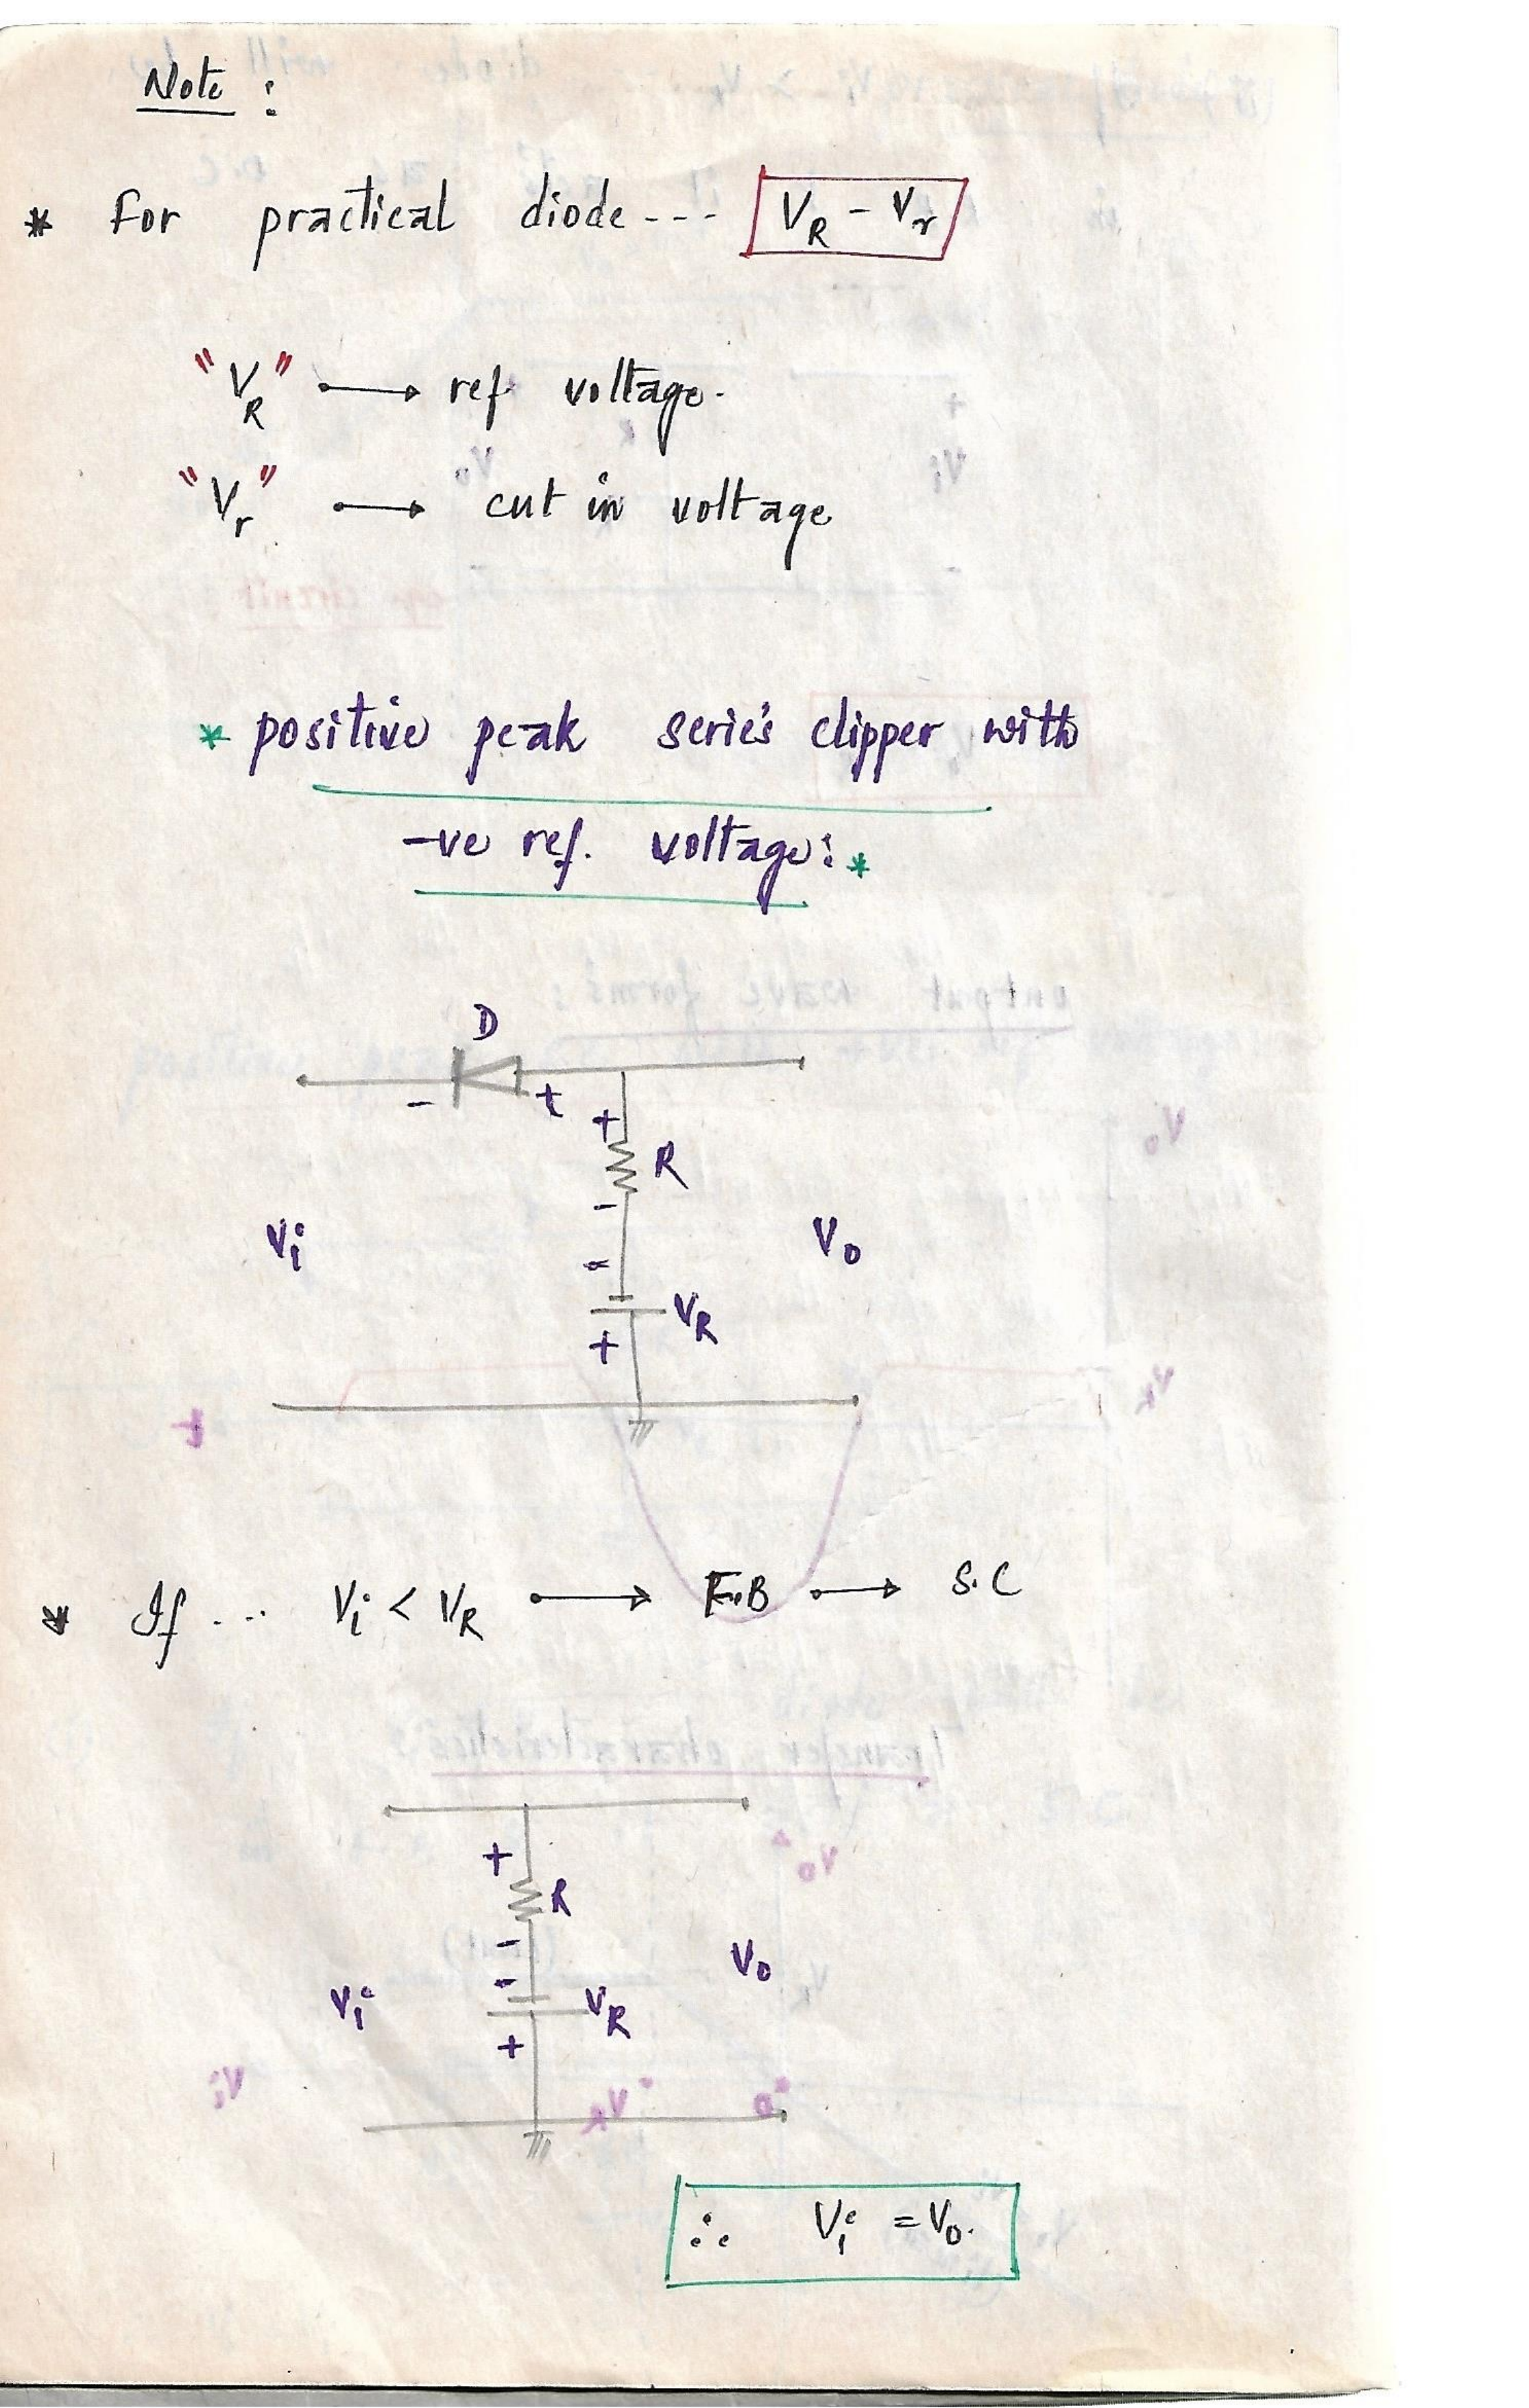 Note :
* for practical diode --- V_R - V_r
"V_R" → ref voltage.
"V_r" → cut in voltage
* positive peak serie's clipper with
-ve ref. voltage: *
D
- +
+
R
-
Vi V0
-
V_R
+
* If ... Vi < V_R → F.B → S.C
+
R
-
V0
-
Vi V_R
+
∴ Vi = V0.